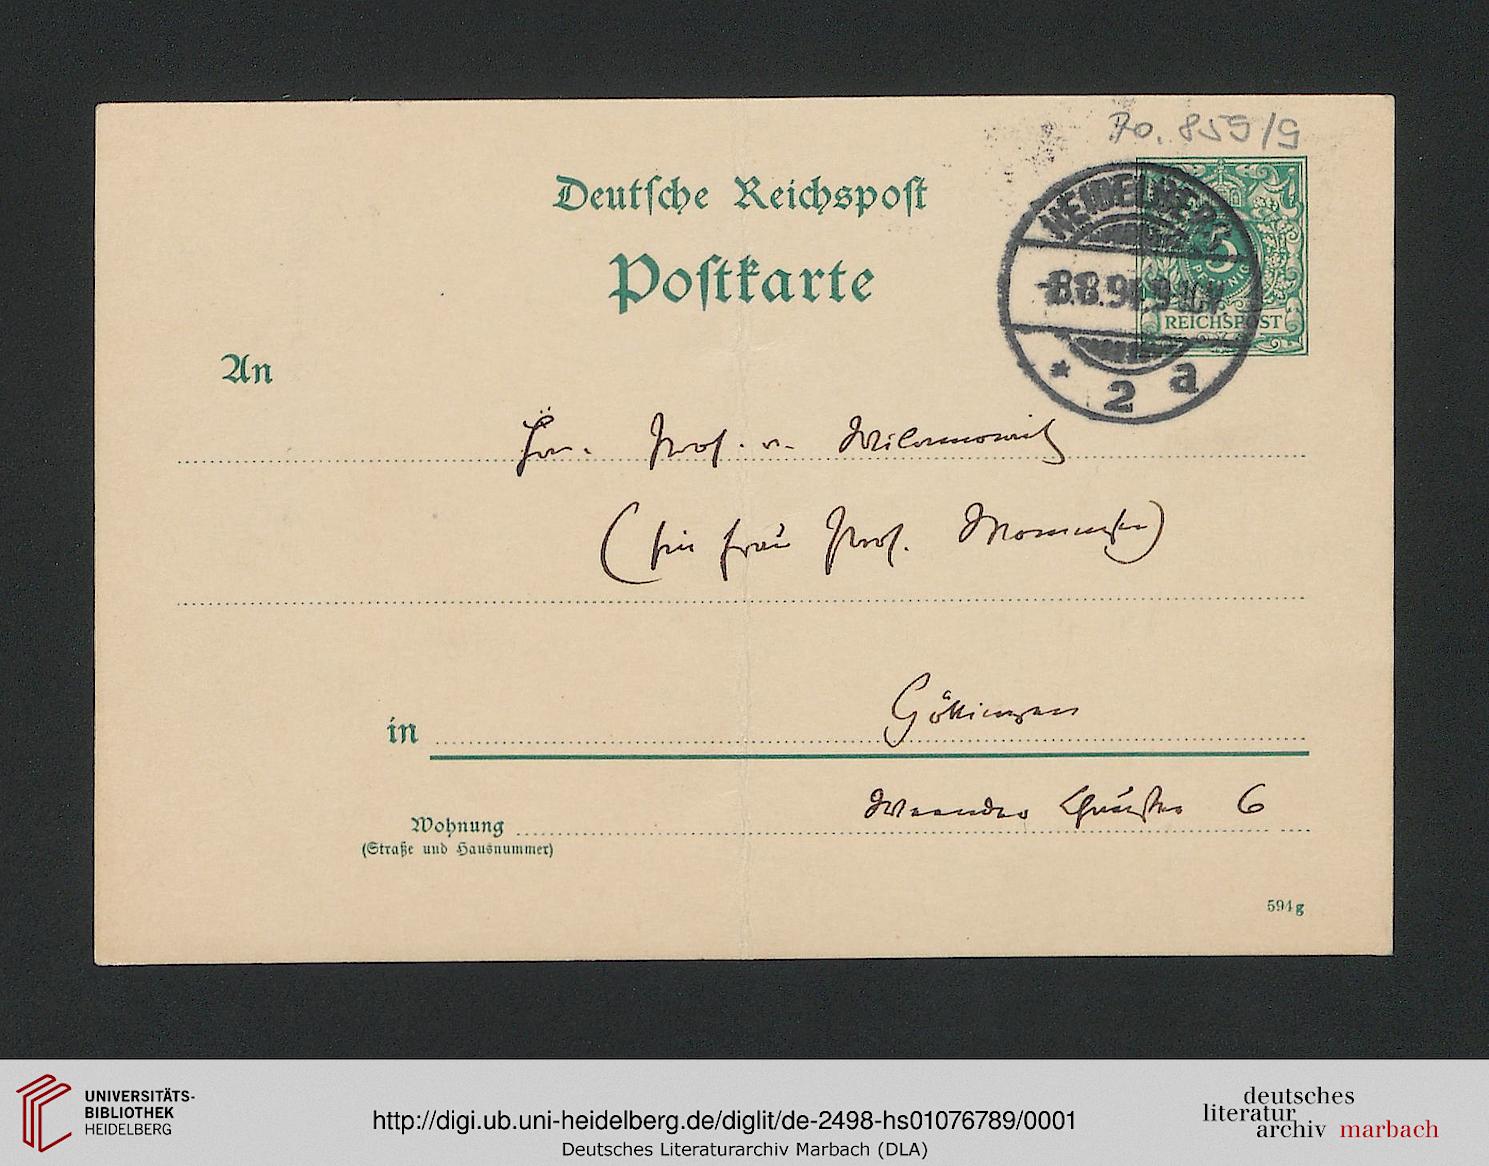 70. 859/9
Deutsche Reichspost
Postkarte
HEIDELBERG
-8.8.91.9-10V.
* 2 a
5
PFENNIG
REICHSPOST
An
Hrn. Prof. v. Wilamowitz
(für Frau Prof. Mommsen)
in Göttingen
Weender Chaussee 6
Wohnung
(Straße und Hausnummer)
594g
UNIVERSITÄTS-
BIBLIOTHEK
HEIDELBERG
http://digi.ub.uni-heidelberg.de/diglit/de-2498-hs01076789/0001
Deutsches Literaturarchiv Marbach (DLA)
deutsches
literatur
archiv marbach